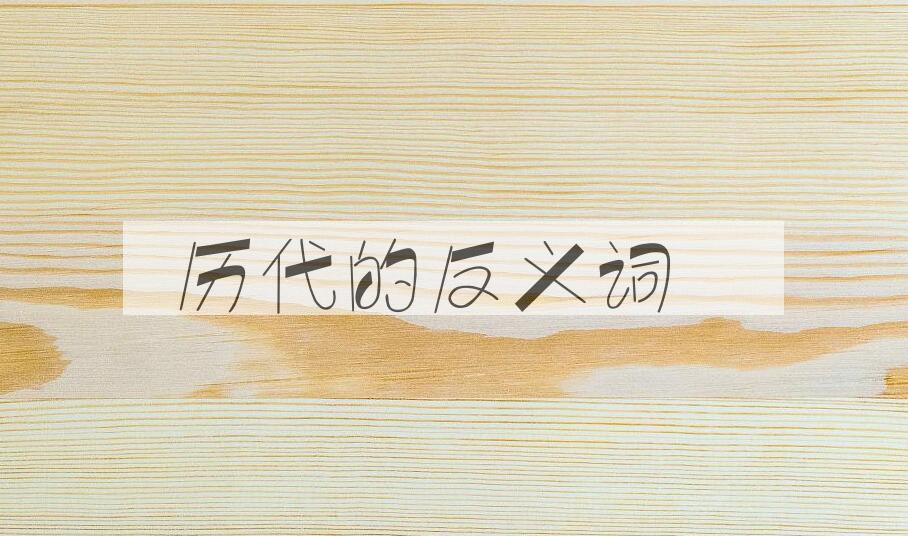 历代的反义词